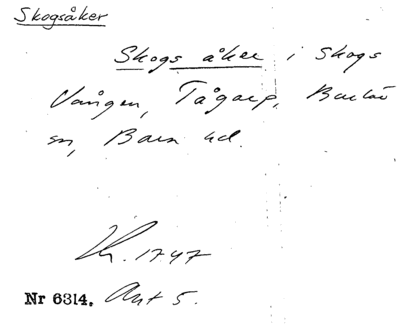 Skogsåker
Skogs åker i Skogs
Vången, Tågarp, Barkåkra
sn, Bara hd.
Kr. 1747
Nr 6314. Akt 5.